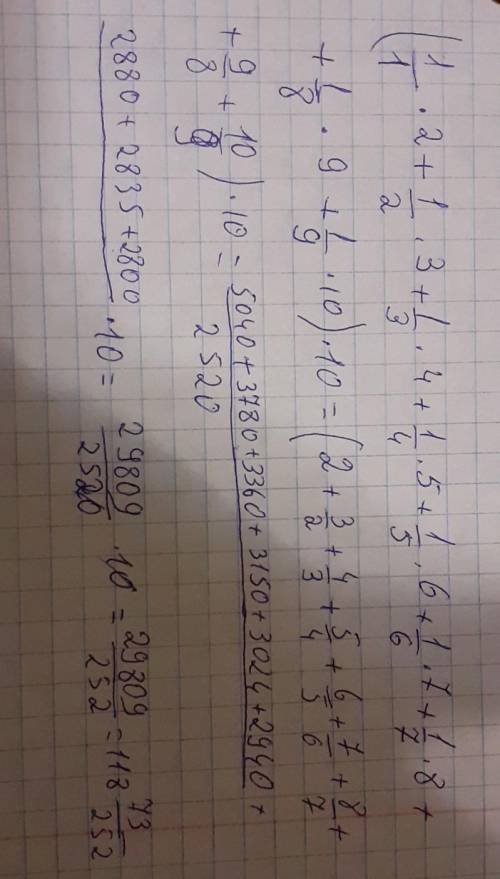 (1/1 · 2 + 1/2 · 3 + 1/3 · 4 + 1/4 · 5 + 1/5 · 6 + 1/6 · 7 + 1/7 · 8 +
+ 1/8 · 9 + 1/9 · 10) · 10 = (2 + 3/2 + 4/3 + 5/4 + 6/5 + 7/6 + 8/7 +
+ 9/8 + 10/9) · 10 = 5040 + 3780 + 3360 + 3150 + 3024 + 2940 +
2520
2880 + 2835 + 2800 · 10 = 29809/2520 · 10 = 29809/252 = 118 73/252